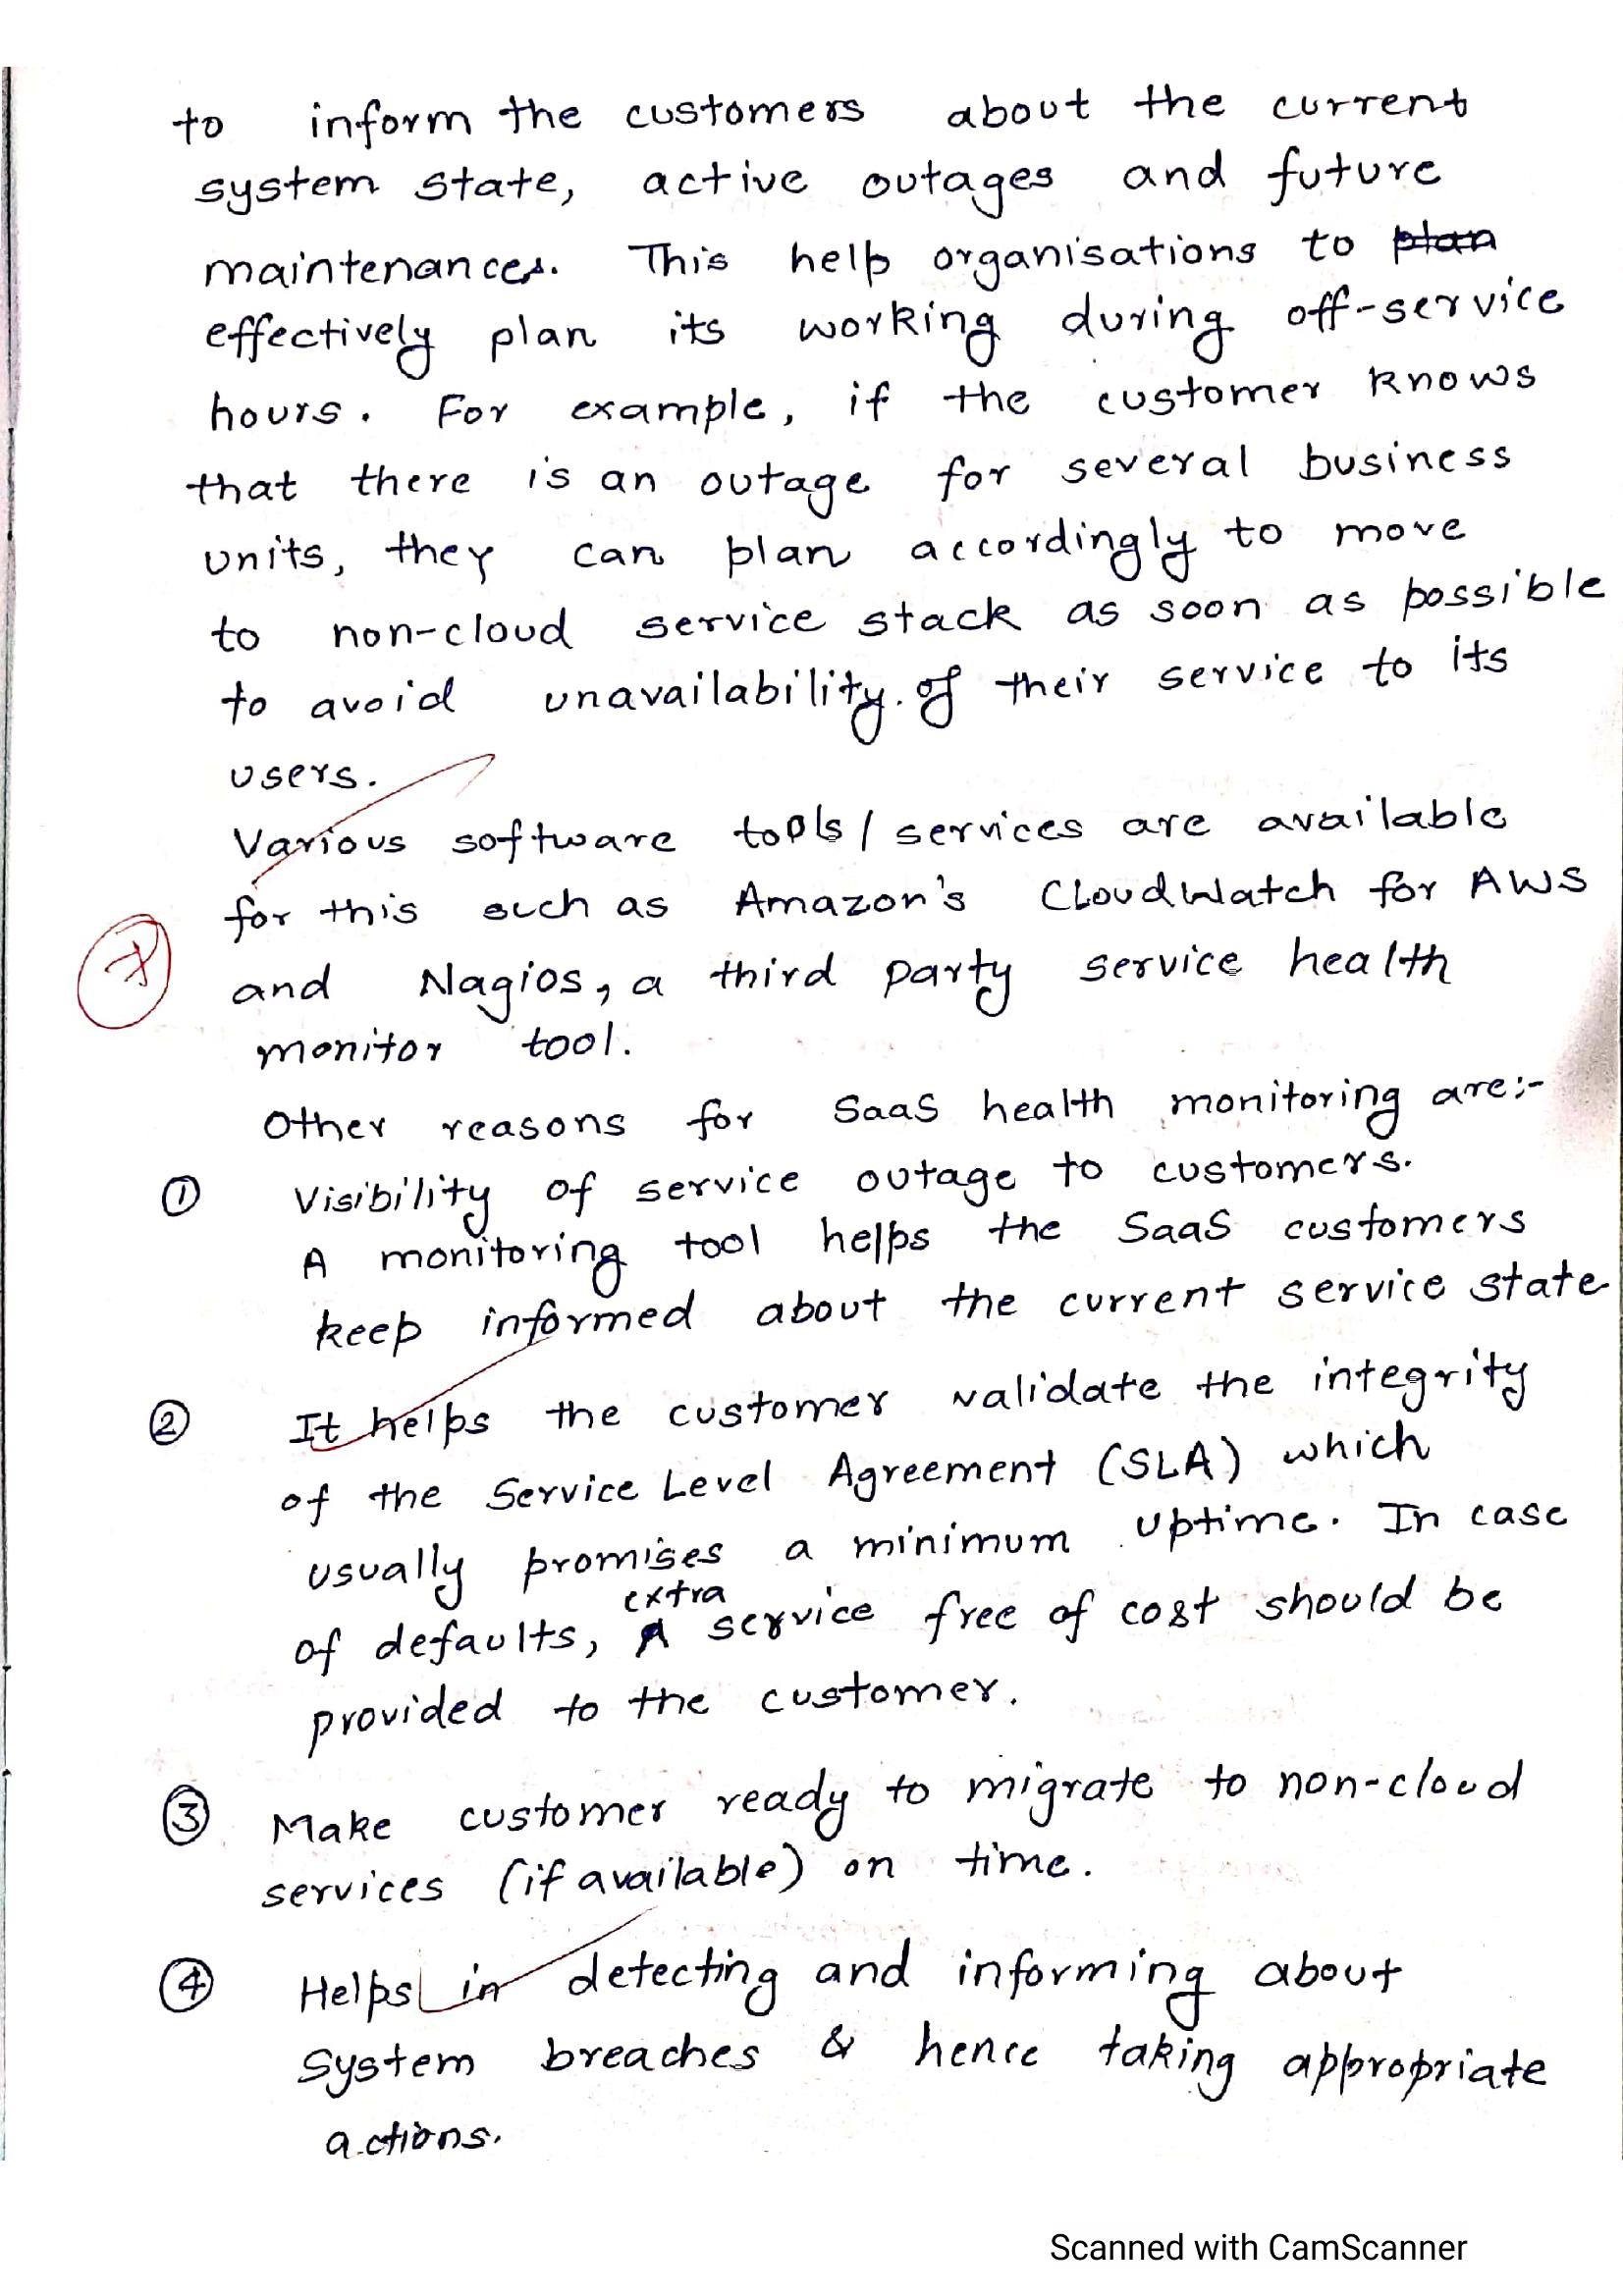 to inform the customers about the current
system state, active outages and future
maintenances. This help organisations to plan
effectively plan its working during off-service
hours. For example, if the customer knows
that there is an outage for several business
units, they can plan accordingly to move
to non-cloud service stack as soon as possible
to avoid unavailability of their service to its
users.
Various software tools/services are available
for this such as Amazon's CloudWatch for AWS
and Nagios, a third party service health
monitor tool.
Other reasons for SaaS health monitoring are:-
① Visibility of service outage to customers.
A monitoring tool helps the SaaS customers
keep informed about the current service state
② It helps the customer validate the integrity
of the Service Level Agreement (SLA) which
usually promises a minimum uptime. In case
of defaults, extra service free of cost should be
provided to the customer.
③ Make customer ready to migrate to non-cloud
services (if available) on time.
④ Helps in detecting and informing about
System breaches & hence taking appropriate
actions.
Scanned with CamScanner